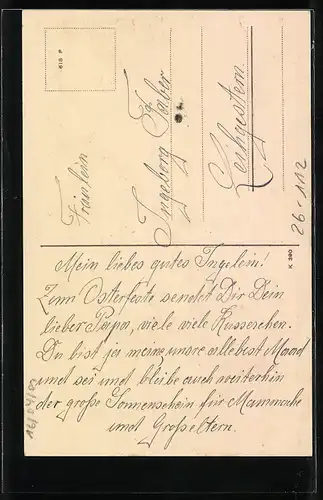 618 P
Fräulein
Ingeborg Faber
Leihgestern.
26-112
K 390
Mein liebes gutes Ingelein!
Zum Osterfeste sendet Dir Dein
lieber Papa, viele viele Küsserchen.
Du bist ja unsre allebest Maad
und sei und bleibe auch weiterhin
der große Sonnenschein für Mammache
und Großeltern.
16/04/03